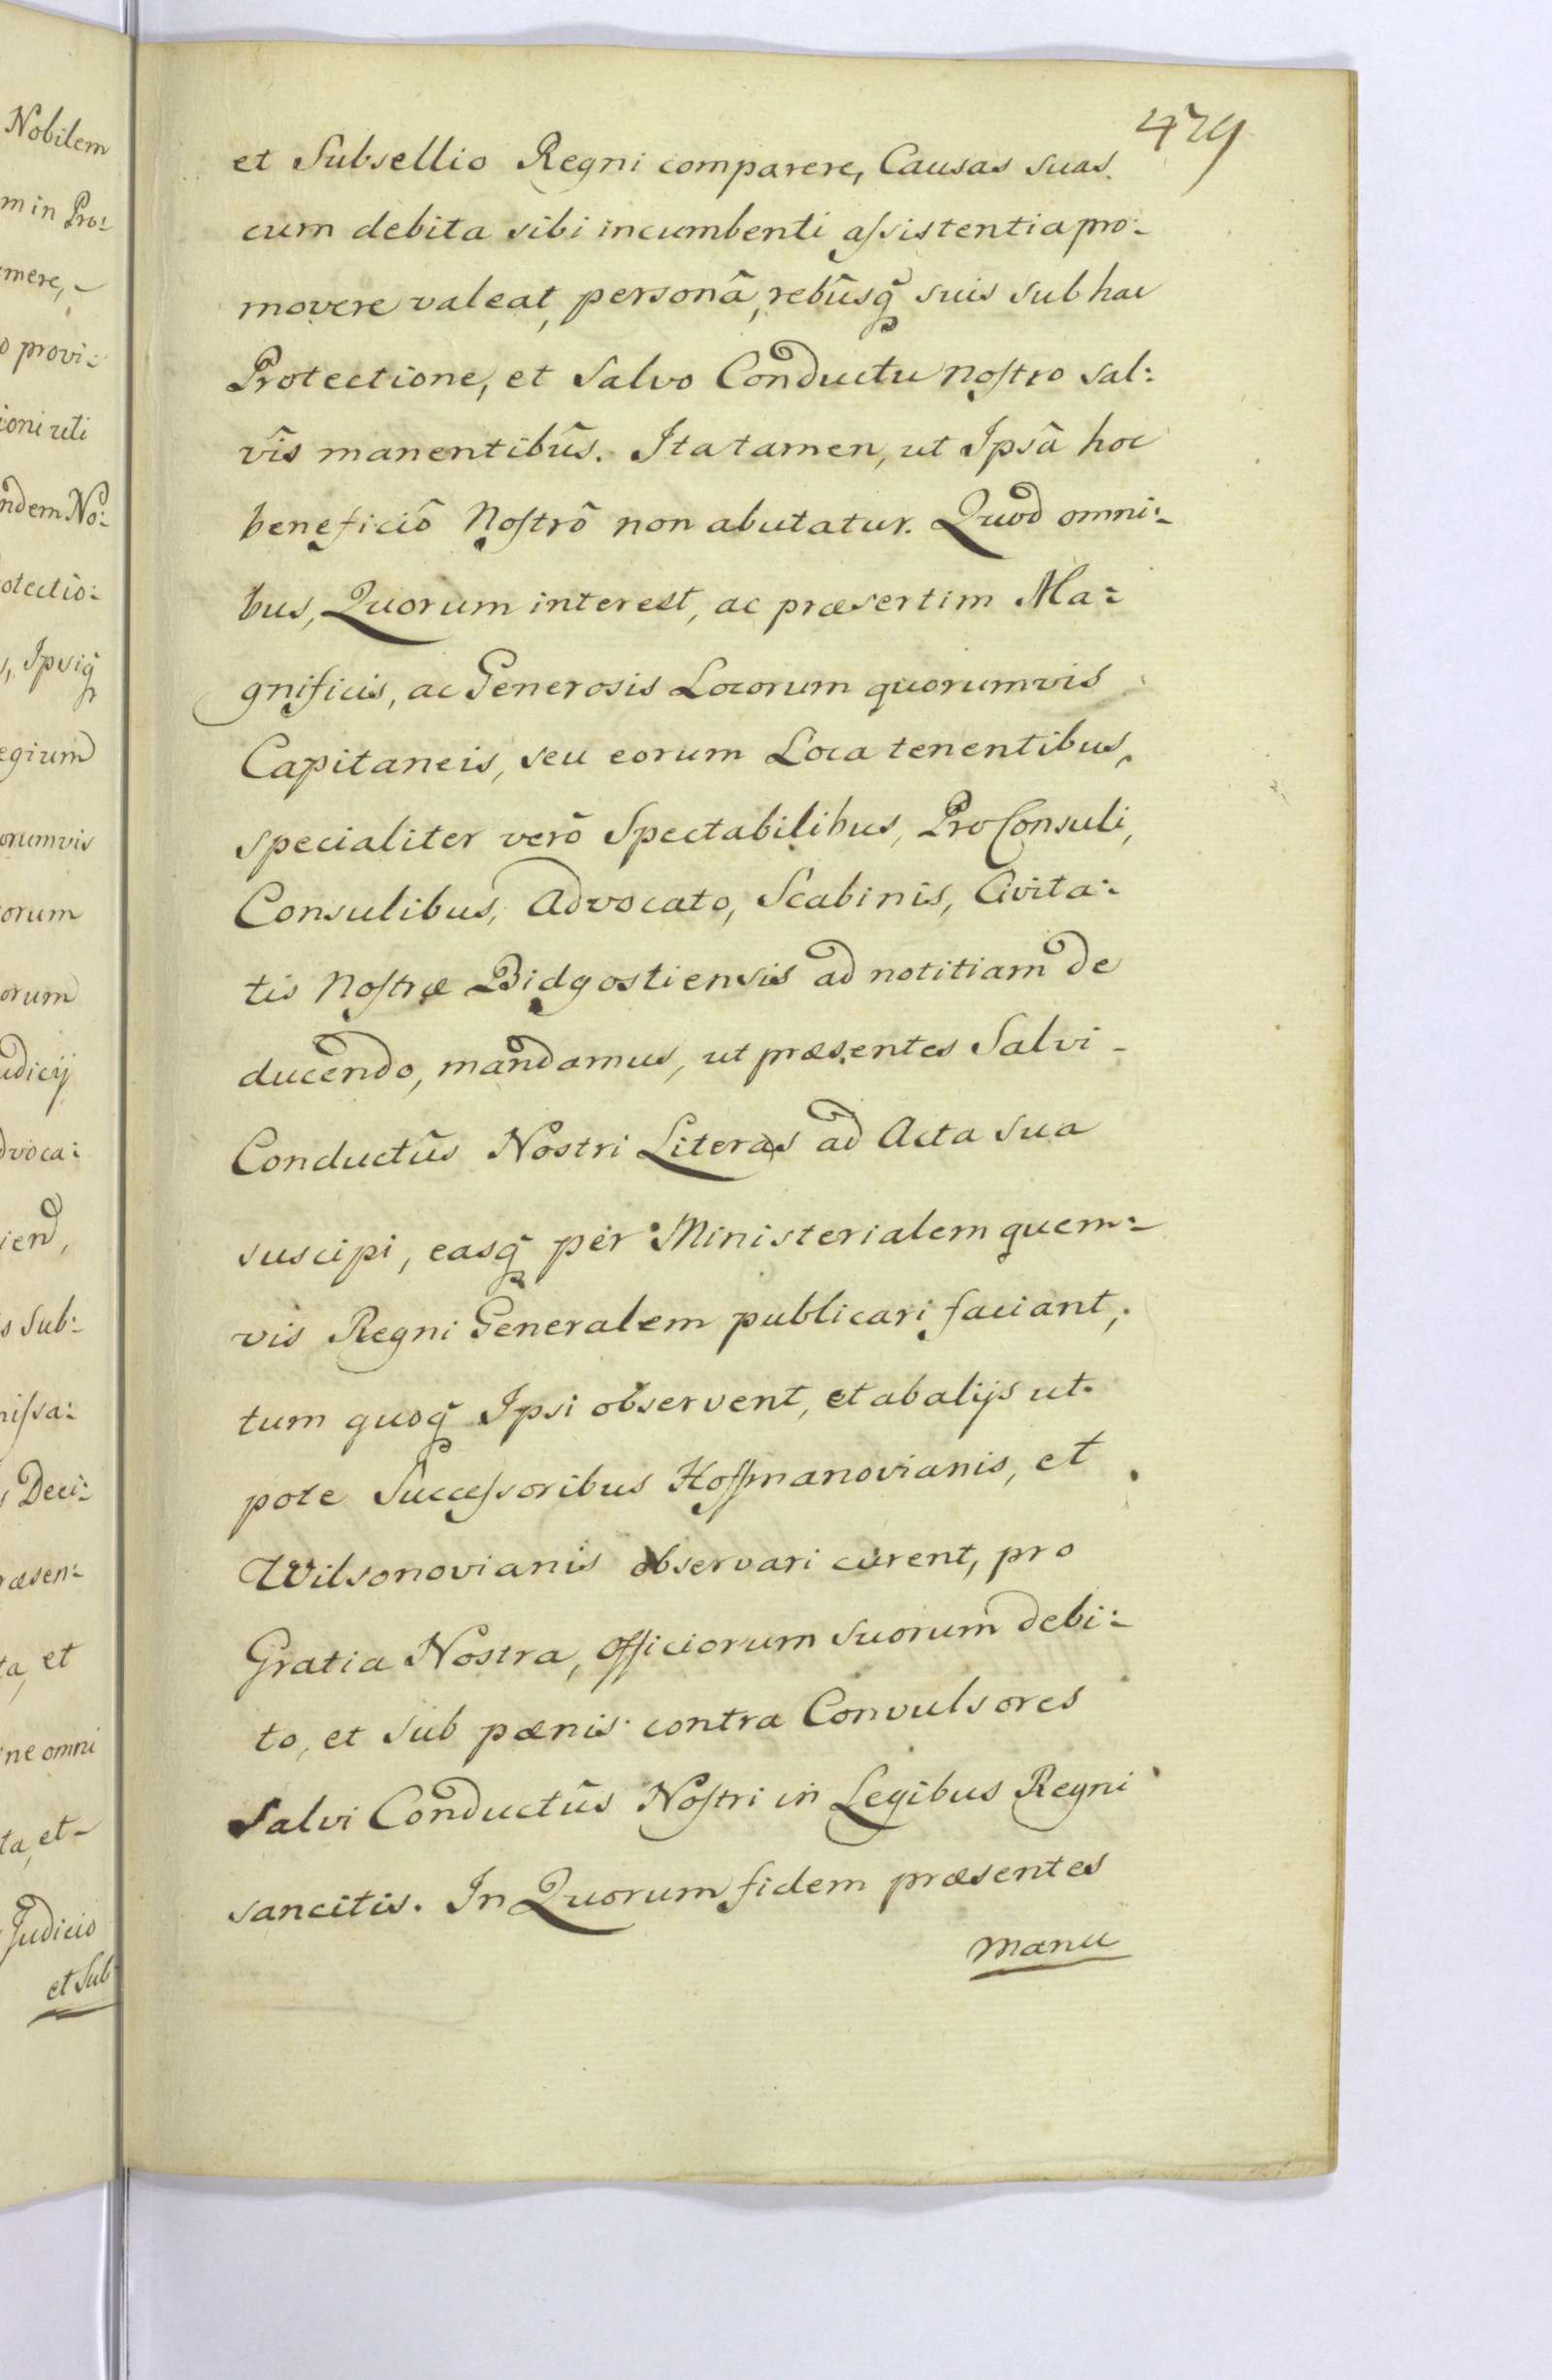 479
et Subsellio Regni comparere, Causas suas
cum debita sibi incumbenti aſsistentia pro:
movere valeat, personâ, rebûsq̃ suis sub hac
Protectione, et Salvo Conductu noſtro sal:
vîs manentibûs. Ita tamen, ut Ipsâ hoc
beneficiô Noſtrô non abutatur. Quod omni:
bus, Quorum interest, ac præsertim Ma:
gnificis, ac Generosis Locorum quorumvis
Capitaneis, seu eorum Loca tenentibus,
specialiter verô Spectabilibus, ProConsuli,
Consulibus, Advocato, Scabinis, Civita:
tis Noſtræ Bidgostiensis ad notitiam de
ducendo, mandamus, ut præsentes Salvi-
Conductûs Nostri Literas ad Acta sua
suscipi, easq̃ per Ministerialem quem:
vis Regni Generalem publicari faciant,
tum quoq̃ Ipsi observent, et ab alijs ut
pote Succeſsoribus Hoffmanovianis, et
Wilsonovianis observari curent, pro
Gratia Nostra, officiorum suorum debi:
to, et sub pænis contra Convulsores
Salvi Conductûs Noſtri in Legibus Regni
sancitis. In Quorum fidem præsentes
manu
Nobilem
m in Pro:
mere,
o provi:
ioni uti
ndem No:
otectio:
s, Ipsiq̃
egium
orumvis
orum
orum
udicij
dvoca:
iend,
s Sub:
niſsa:
, Deci:
ræsen:
ta, et
ne omni
ta, et
Judicio
et Sub